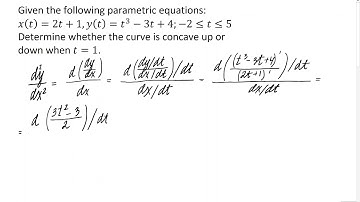 Given the following parametric equations:
x(t) = 2t + 1, y(t) = t³ − 3t + 4; −2 ≤ t ≤ 5
Determine whether the curve is concave up or
down when t = 1.
d²y/dx² = d(dy/dx)/dx = d((dy/dt)/(dx/dt))/dt / dx/dt = d((t³−3t+4)'/(2t+1)')/dt / dx/dt =
= d((3t²−3)/2)/dt